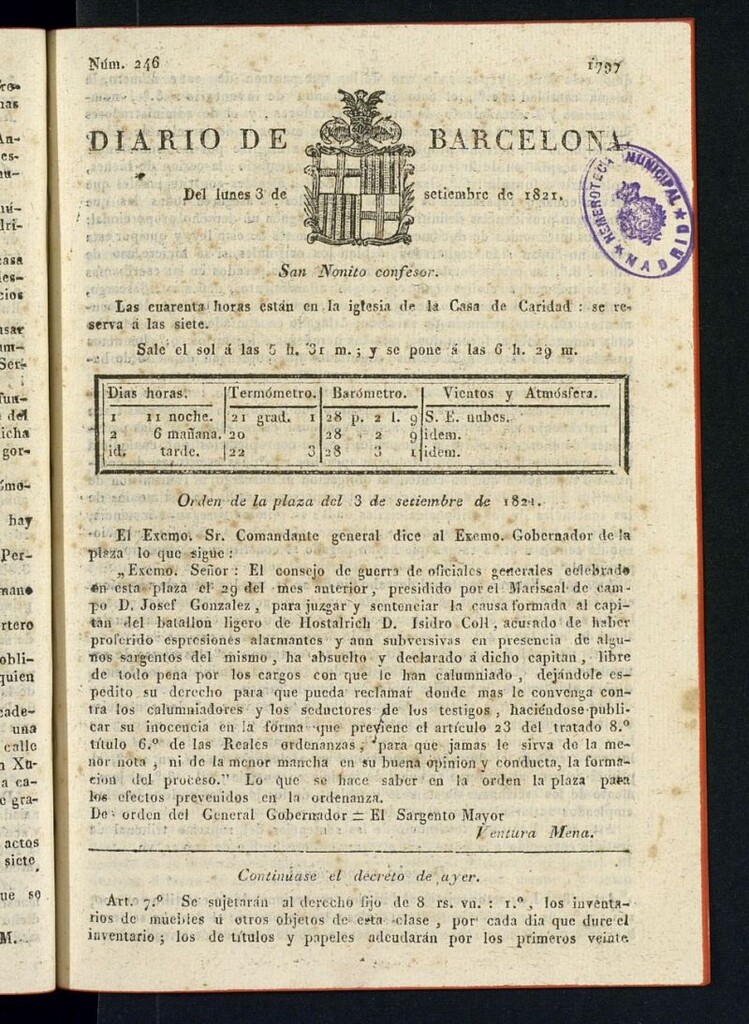 Núm. 246
1797
DIARIO DE BARCELONA,
Del lunes 3 de setiembre de 1821.
HEMEROTECA MUNICIPAL
MADRID
San Nonito confesor.
Las cuarenta horas están en la iglesia de la Casa de Caridad : se re-
serva á las siete.
Sale el sol á las 5 h. 31 m. ; y se pone á las 6 h. 29 m.
Dias horas. Termómetro. Barómetro. Vientos y Atmósfera.
1 11 noche. 21 grad. 1 28 p. 2 l. 9 S. E. nubes.
2 6 mañana. 20 28 2 9 idem.
id. tarde. 22 3 28 3 1 idem.
Orden de la plaza del 3 de setiembre de 1821.
El Exemo. Sr. Comandante general dice al Exemo. Gobernador de la
plaza lo que sigue :
„Exemo. Señor : El consejo de guerra de oficiales generales celebrado
en esta plaza el 29 del mes anterior, presidido por el Mariscal de cam-
po D. Josef Gonzalez, para juzgar y sentenciar la causa formada al capi-
tan del batallon ligero de Hostalrich D. Isidro Coll, acusado de haber
proferido espresiones alarmantes y aun subversivas en presencia de algu-
nos sargentos del mismo, ha absuelto y declarado á dicho capitan, libre
de todo pena por los cargos con que le han calumniado, dejándole es-
pedito su derecho para que pueda reclamar donde mas le convenga con-
tra los calumniadores y los seductores de los testigos, haciéndose publi-
car su inocencia en la forma que previene el artículo 23 del tratado 8.º
título 6.º de las Reales ordenanzas, para que jamas le sirva de la me-
nor nota, ni de la menor mancha en su buena opinion y conducta, la forma-
cion del proceso." Lo que se hace saber en la orden la plaza para
los efectos prevenidos en la ordenanza.
De orden del General Gobernador = El Sargento Mayor
Ventura Mena.
Continúase el decreto de ayer.
Art. 7.º Se sujetarán al derecho fijo de 8 rs. vn. : 1.º, los inventa-
rios de muebles ú otros objetos de esta clase, por cada dia que dure el
inventario ; los de títulos y papeles adeudarán por los primeros veinte